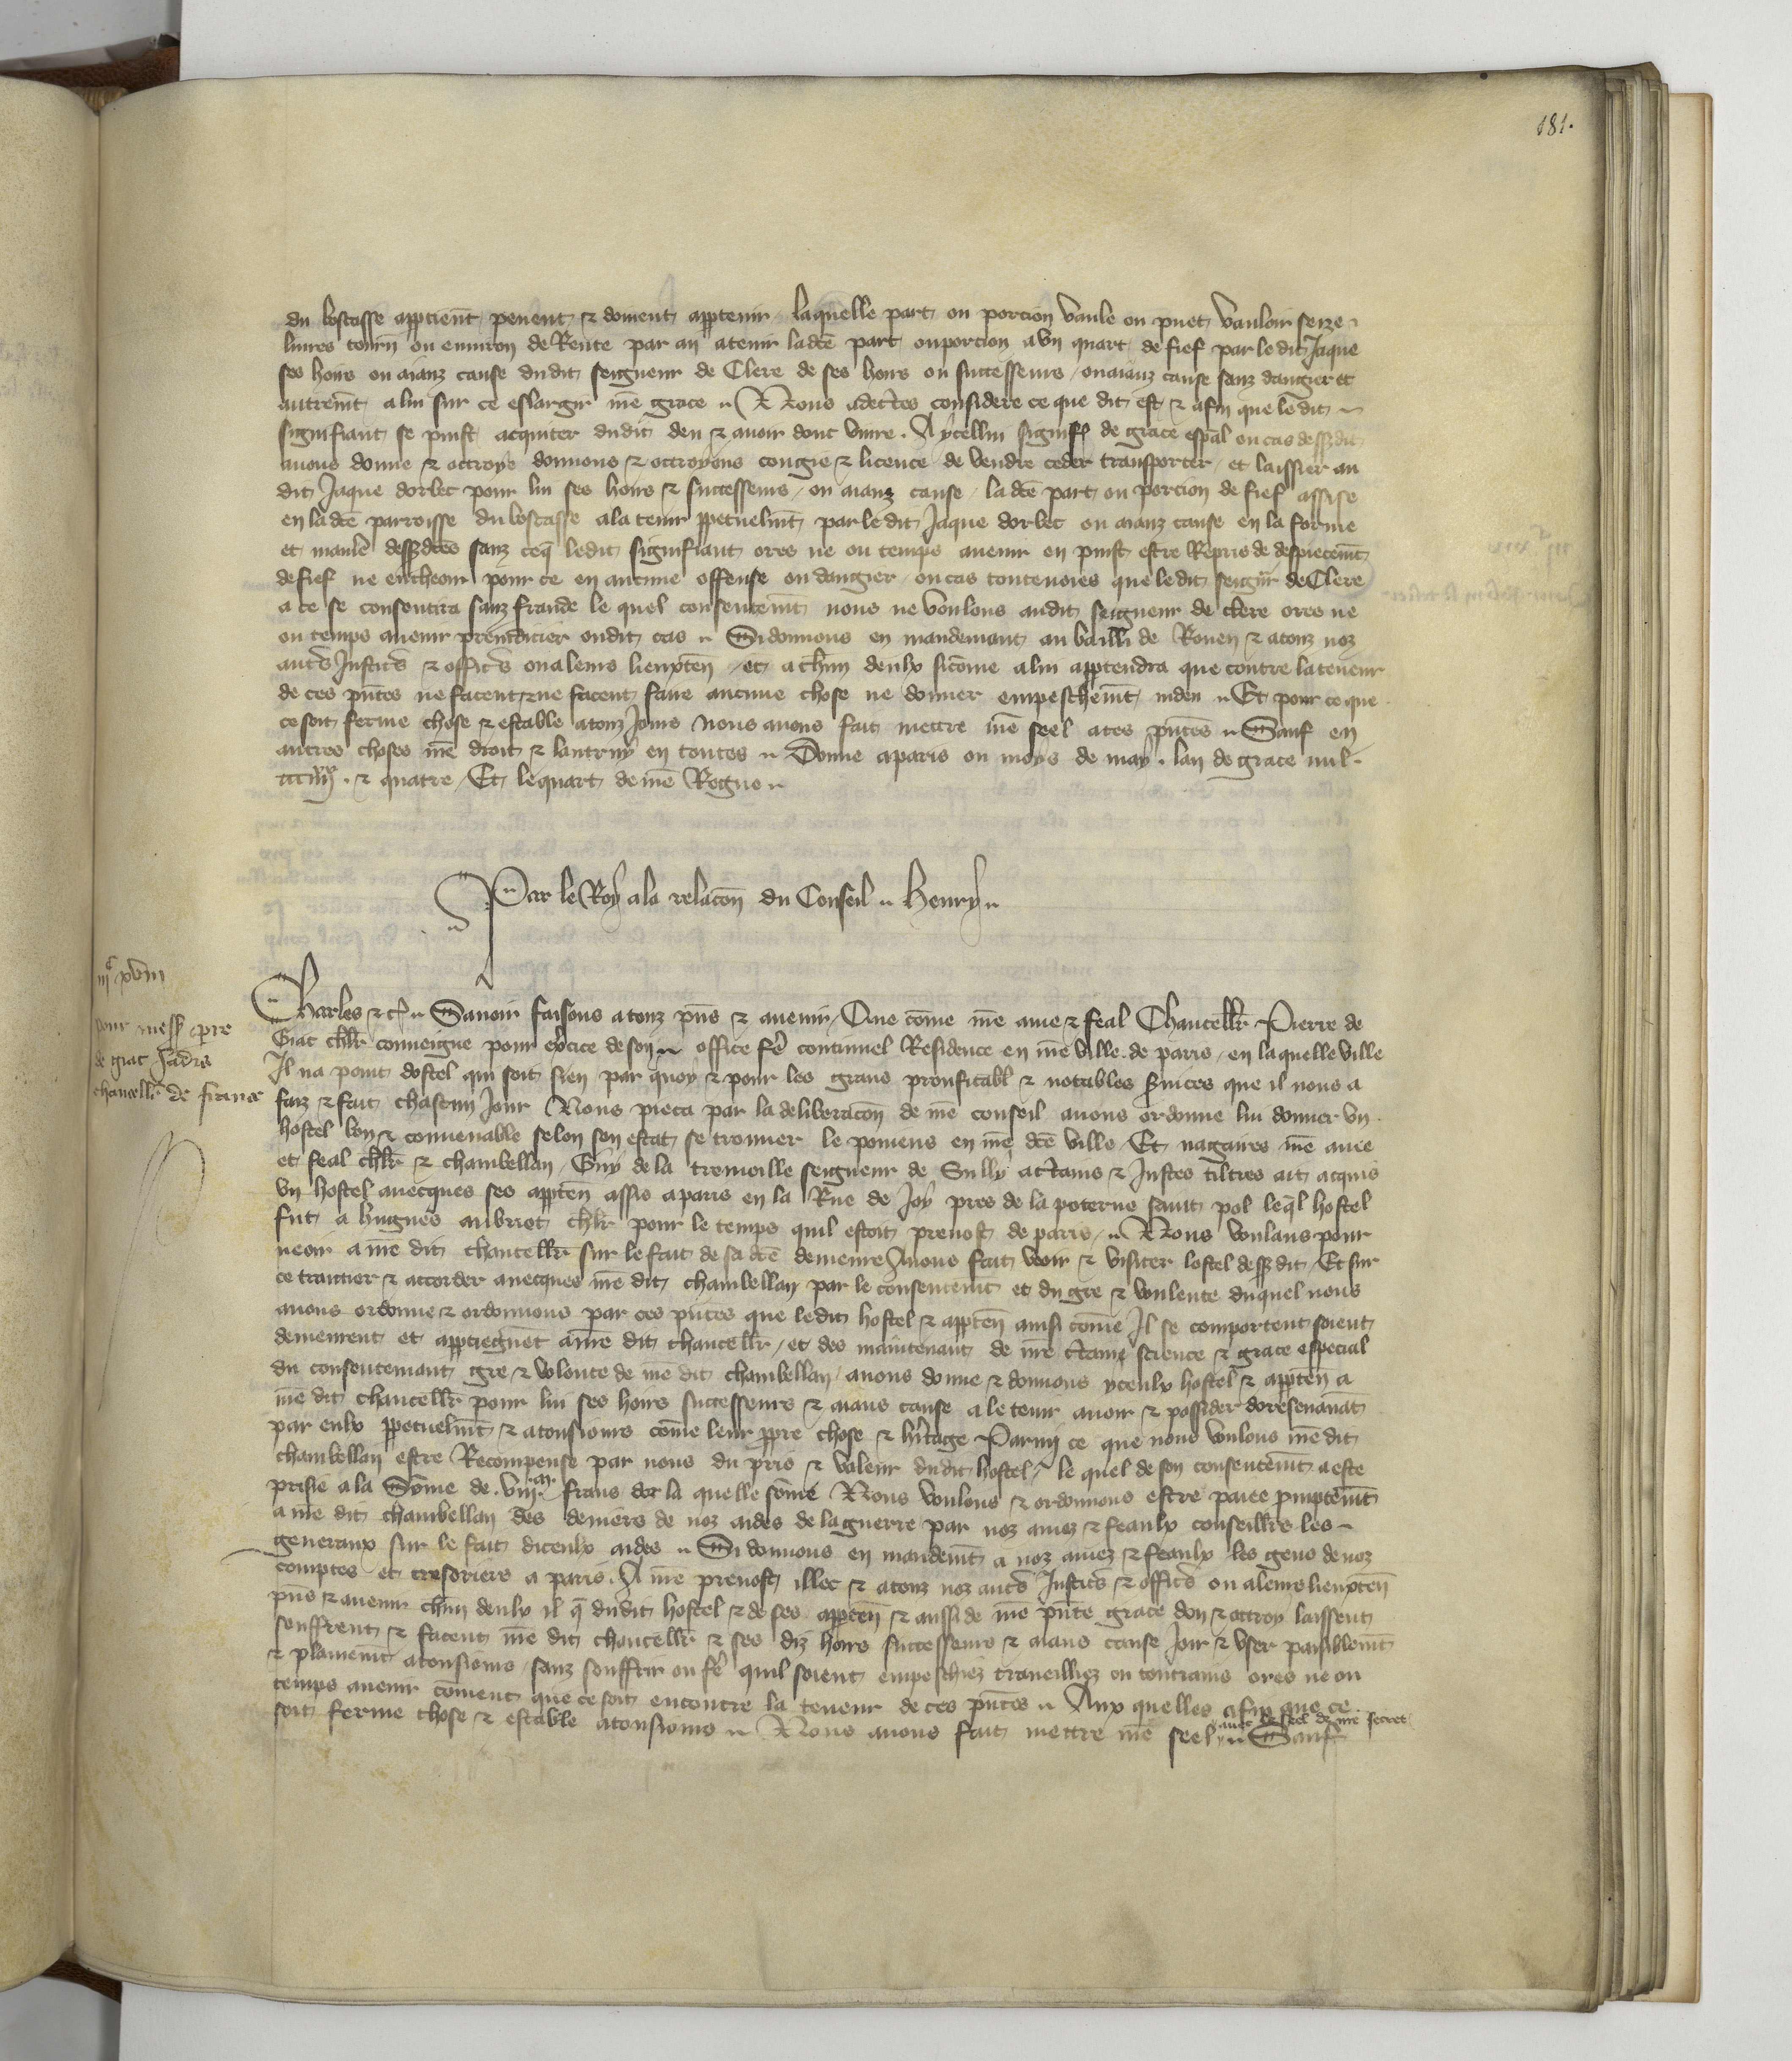 181.
du boscasse apptienẽt peuent & doiuent apptenir laquelle part ou porcion vaule ou puet vauloir seize
liures tourñ ou enuiron de Rente par an atenir ladc̃e part ou porcion a vn quart de fief par le dit Jaque
ses hoirs ou aianz cause du dit seigneur de Clere de ses hoirs ou successeurs / ou aianz cause sanz dangier et
autremẽt a lui sur ce eslargir nr̃e grace .. Nous adec̃tes considere ce que dit est & afin que le dit
signifiant se puist acquiter du dit deu & auoir dont viure . A ycellui signifi̾ de grace esp̃al ou cas dess̾dit
auons donne & octroye donnons & octroyons congie & licence de vendre ceder transporter / et laissier au
dit Jaque dorbec pour lui ses hoirs & successeurs / ou aianz cause / la dc̃e part ou porcion de fief assise
en la dc̃e parroisse du boscasse a la tenir ꝑpetuelmẽt par le dit Jaque dorbec ou aianz cause en la forme
et manie̾ dess̾dc̃es sanz ceq̃ ledit signifiant ores ne ou temps auenir en puist estre Repris de despiecemẽt
de fief ne encheoir pour ce en aucune offense ou dangier / ou cas toutenoies que le dit seigñr de Clere
a ce se consentira sanz fraude le quel consentemẽt nous ne voulons au dit seigneur de clere ores ne
ou temps auenir preiudicier ou dit cas .. Si donnons en mandemant au bailli de Rouen & a touz noz
aut̾s Justic̾s & offic̾s ou a leurs lieuxteñ / et a chũn deulx sicõme a lui apptendra que contre la teneur
de ces pñtes ne facent & ne facent faire aucune chose ne donner empeschemẽt indeu .. Et pour ce que
ce soit ferme chose & estable a touz Jours nous auons fait mettre nr̃e seel a ces pñtes .. Sauf en
autres choses nr̃e droit & lautruy en toutes .. Donne a paris ou moys de may . lan de grace mil
ccciiii^xx . & quatre / Et le quart de nr̃e Regne ..
Par le Roy a la relacõn du Conseil .. Henry ..
iij^c xviii
pour mess̾ p̾re
de giac Jadis
chancell̃r de france
Charles &c̾ .. Sauoir faisons a touz pñs & auenir / Que cõme nr̃e ame & feal Chancell̃r Pierre de
Giac chl̃r conueigne pour exc̾ice de son office fe̾ continuel Residence en nr̃e ville de paris / en laquelle ville
Il na point dostel qui soit sien par quoy & pour les grans prouffitabl̾ & notables s̾uices que il nous a
faiz & fait chascun Jour Nous pieca par la deliberacõn de nr̃e conseil auons ordonne lui donner vn
hostel bon & conuenable selon son estat se trouuer le pouuions en nr̃e dc̃e ville / Et nagaires nr̃e ame
et feal chl̃r & chambellan / Guy de la tremoille seigneur de Sully a c̾tains & Justes tiltres ait acquis
vn hostel auecques ses appteñ assis a paris en la Rue de Joy pres de la poterne saint pol leq̃l hostel
fut a hugues aubriot chl̃r pour le temps quil estoit preuost de paris / .. Nous voulans pour
ueoir a nr̃e dit chancell̃r sur le fait de sa dc̃e demeure Auons fait veoir & visiter lostel dess̾ dit / Et sur
ce traictier & accorder auecques nr̃e dit chambellan par le consentemẽt et du gre & voulente duquel nous
auons ordonne & ordonnons par ces pñtes que ledit hostel & appteñ ainsi cõme Il se comportent soient
demeurent et apptiegnẽt a nr̃e dit chancell̃r / et des maintenant de nr̃e c̾taine science & grace especial
du consentemant gre & volonte de nr̃e dit chambellan / auons donne & donnons yceulx hostel & appteñ a
nr̃e dit chancell̃r pour lui ses hoirs successeurs & aians cause a le tenir auoir & possider doresenauãt
par eulx ꝑpetuelmẽt & a tousiours cõme leur ꝓpre chose & hĩtage Parmi ce que nous voulons nr̃e dit
chambellan estre Recompense par nous du pris & valeur du dit hostel / le quel de son consentemẽt a este
prisie a la Sõme de viii^m frans dor la quelle sõme Nous voulons & ordonnons estre paiee ꝓmptemẽt
a nr̃e dit chambellan des deniers de noz aides de la guerre par noz amez & feaulx conseill̃rs les
generaux sur le fait diceulx aides .. Si donnons en mandemẽt a noz amez & feaulx les gens de noz
comptes et tresoriers a paris . A nr̃e preuost illec & a touz noz aut̾s Justic̾s & offic̾s ou a leurs lieuxteñ
pñs & auenir chũn deulx il q̃ du dit hostel & de ses appteñ & aussi de nr̃e pñte grace don & octroy laissent
seuffrent & facent nr̃e dit chancell̃r & ses diz hoirs successeurs & aians cause Joir & vser paisiblemẽt
& plainemẽt a tousiours / sanz souffrir ou fe̾ quil soient empeschiez traueilliez ou contrains ores ne ou
temps auenir cõment que ce soit encontre la teneur de ces pñtes .. Aux quelles afin que ce
soit ferme chose & estable a tousiours .. Nous auons fait mettre nr̃e seel auec le seel de nr̃e secret .. Sauf